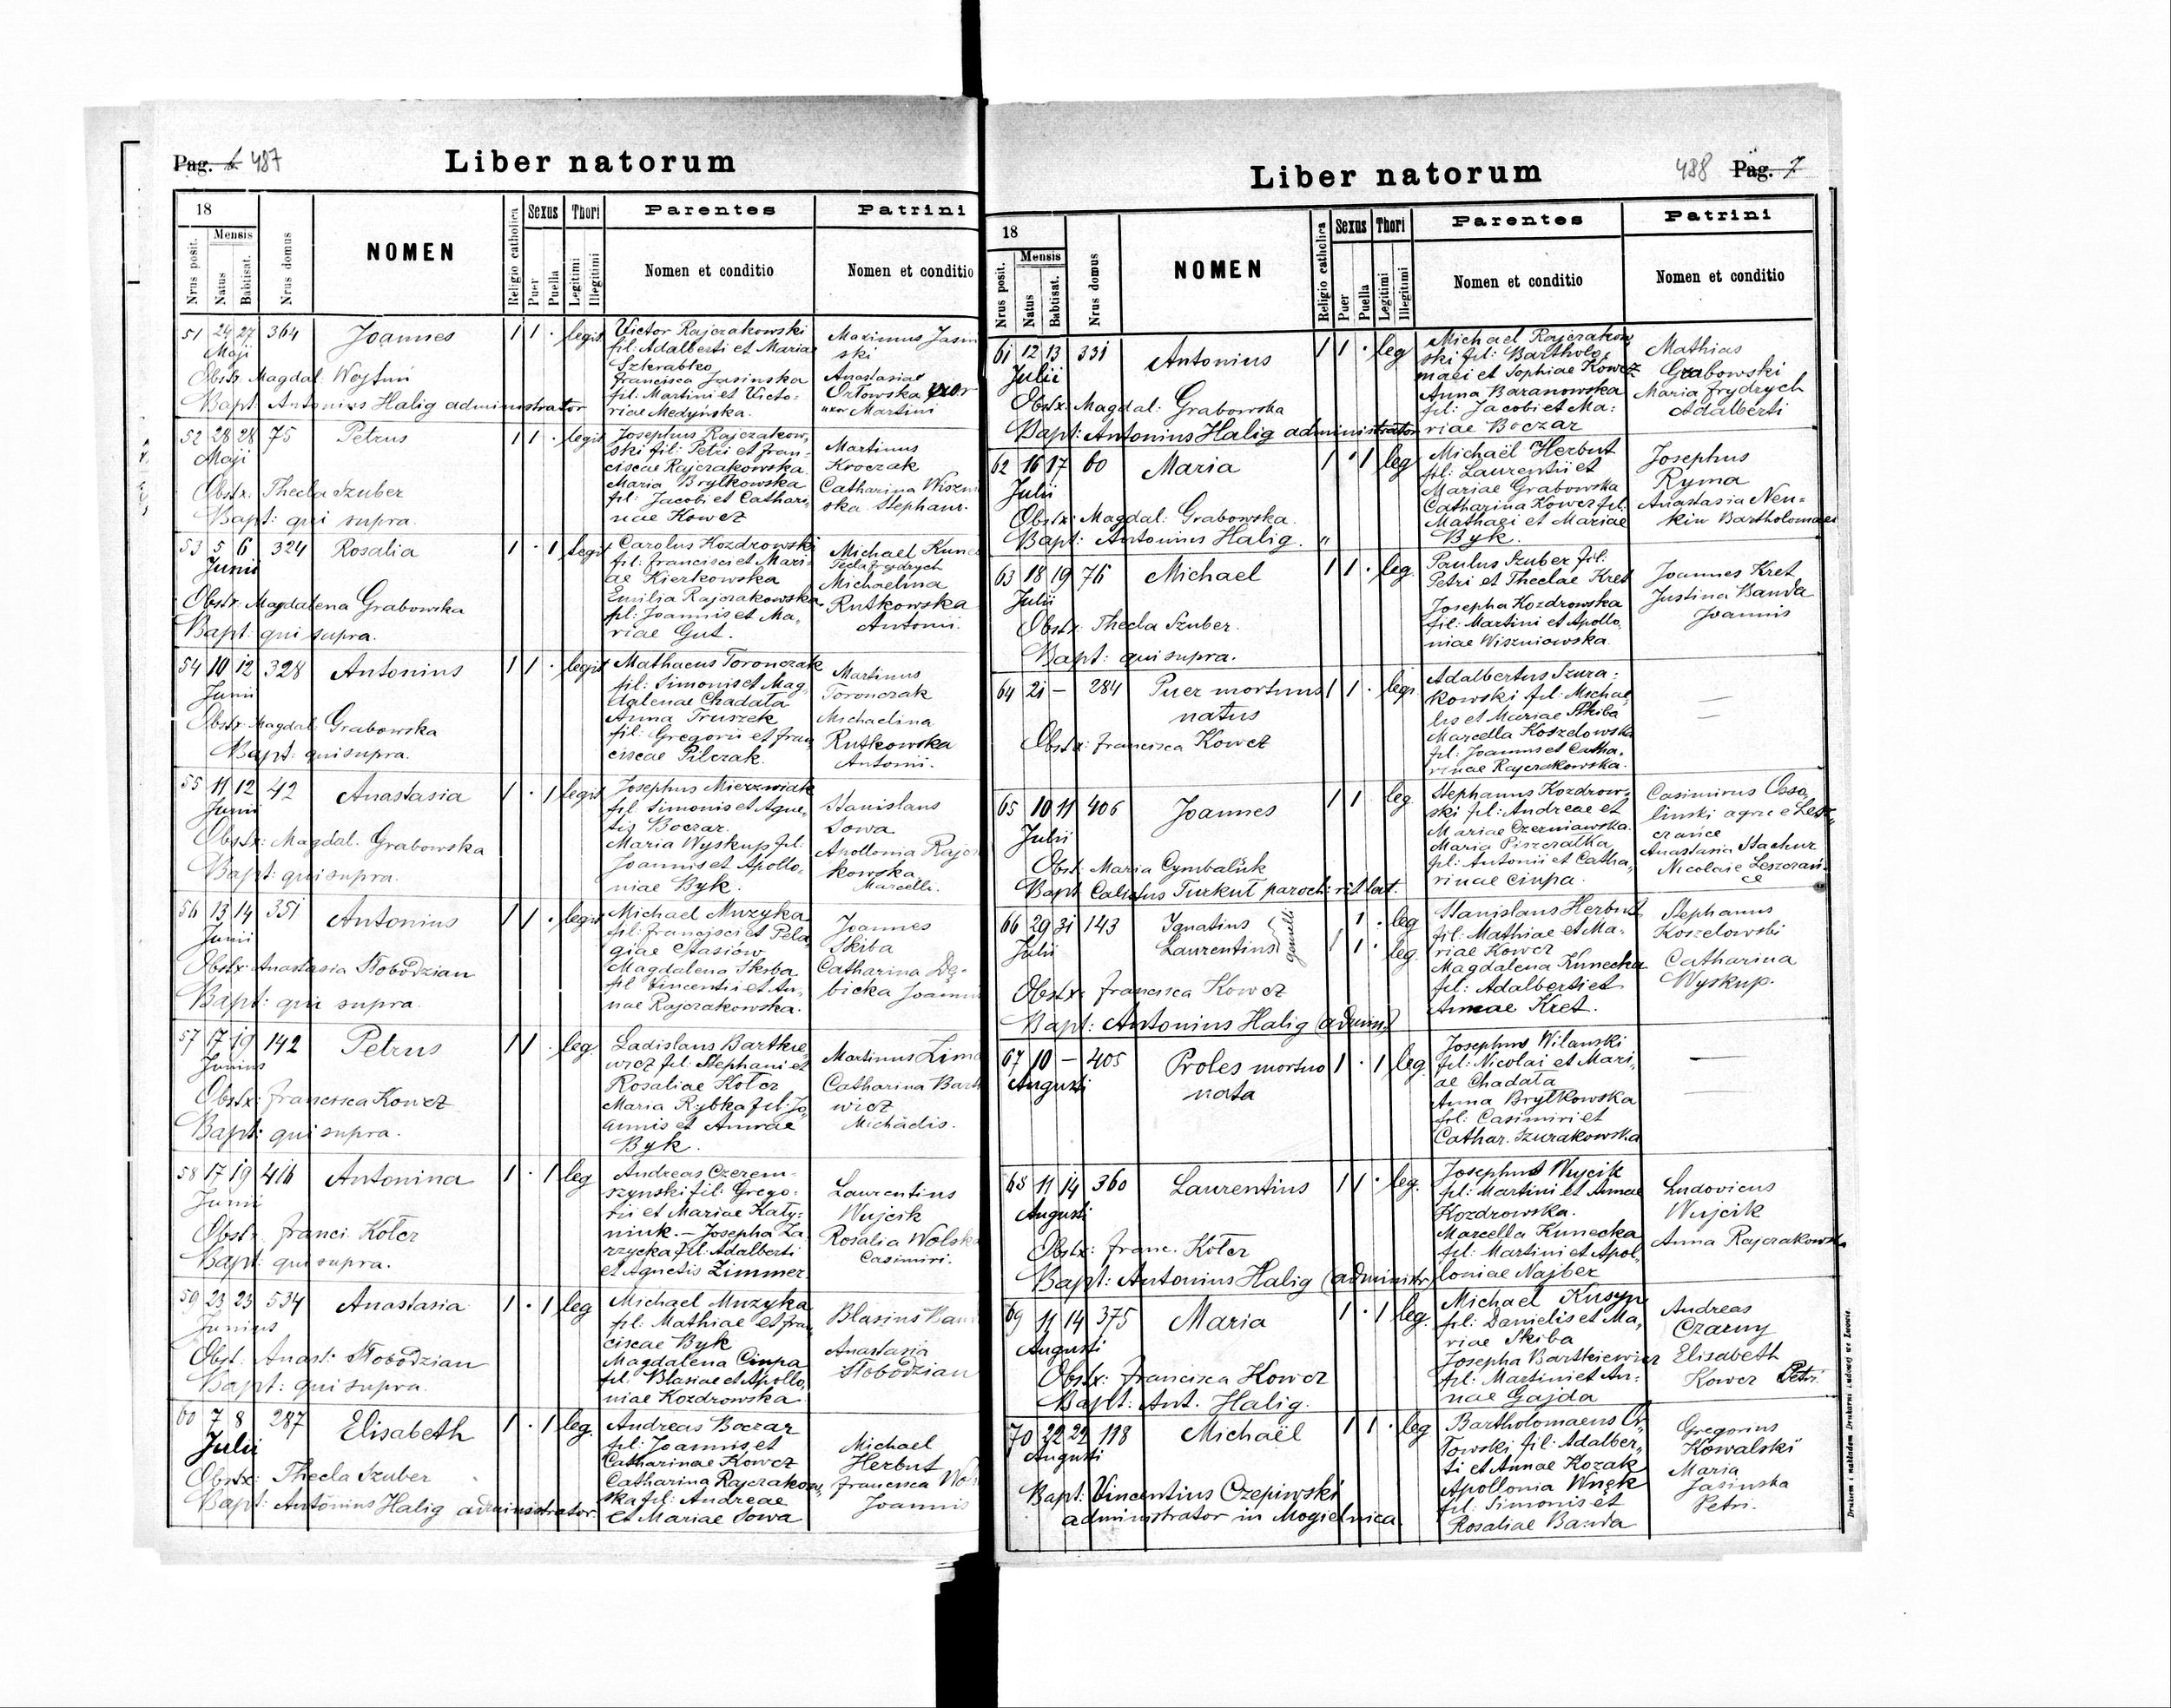 Pag. 6 487
Liber natorum
18
Mensis
Nrus posit.
Natus
Babtisat.
Nrus domus
NOMEN
Religio catholica
Sexus
Puer
Puella
Thori
Legitimi
Illegitimi
Parentes
Nomen et conditio
Patrini
Nomen et conditio
51 24 27 364 Joannes 1 1 · legit
Maji
Obstx: Magdal: Wojtuń
Bapt: Antonius Halig administrator
Victor Rajczakowski
fil: Adalberti et Mariae
Szkrabko
Francisca Jasinska
fil: Martini et Victo:
riae Medyńska.
Maximus Jasin
ski
Anastasia
Orłowska uxor
uxor Martini
52 28 28 75 Petrus 1 1 · legit
Maji
Obstx: Thecla Szuber
Bapt: qui supra.
Josephus Rajczakow,
ski fil: Petri et Fran:
ciscae Rajczakowska
Maria Bryłkowska
fil: Jacobi et Cathari,
nae Kowcz
Martinus
Kroczak
Catharina Wiszni
ska Stephani.
53 5 6 324 Rosalia 1 · 1 legit
Junii
Obstx: Magdalena Grabowska
Bapt: qui supra.
Carolus Kozdrowski
fil: Francisci et Mari:
ae Kierkowska
Emilia Rajczakowska
fil: Joannis et Ma,
riae Gut.
Michael Kune
Tecla Frydrych
Michaelina
Rutkowska
Antonii.
54 10 12 328 Antonius 1 1 · legit
Junii
Obstx: Magdal: Grabowska
Bapt: qui supra.
Mathaeus Toronczak
fil: Simonis et Mag,
dalenae Chadała
Anna Truszek
fil: Gregorii et Fran,
ciscae Pilczak.
Martinus
Toronczak
Michaelina
Rutkowska
Antonii.
55 11 12 42 Anastasia 1 · 1 legit
Junii
Obstx: Magdal. Grabowska
Bapt: qui supra.
Josephus Mierzwiak
fil Simonis et Agne,
tis Boczar.
Maria Wyskup fil:
Joannis et Apollo,
niae Byk.
Stanislaus
Sowa
Apollonia Rajcz
kowska
Marcelli.
56 13 14 351 Antonius 1 1 · legit
Junii
Obstx: Anastasia Słobodzian
Bapt: qui supra.
Michael Muzyka
fil: Francisci et Pela
giae Stasiów
Magdalena Skiba
fil Vincentii et An,
nae Rajczakowska.
Joannes
Skiba
Catharina Dę-
bicka Joannis
57 17 19 142 Petrus 1 1 · leg.
Junius
Obstx: Francisca Kowcz
Bapt: qui supra.
Ladislaus Bartkie
wicz fil: Stephani et
Rosaliae Kołcz
Maria Rybka fil: Jo,
annis et Annae
Byk.
Martinus Zim
Catharina Bartk
wicz
Michaelis.
58 17 19 416 Antonina 1 · 1 leg
Junii
Obstx. Franci. Kołcz
Bapt: qui supra.
Andreas Czerem-
szynski fil: Grego:
rii et Mariae Kały:
niuk. – Josepha Za
rzycka fil: Adalberti
et Agnetis Zimmer.
Laurentius
Wujcik
Rosalia Wolska
Casimiri.
59 23 23 534 Anastasia 1 · 1 leg
Junius
Obst. Anast: Słobodzian
Bapt: qui supra.
Michael Muzyka
fil: Mathiae et Fran,
ciscae Byk
Magdalena Cinpa
fil. Blasiae et Apollo,
niae Kozdrowska
Blasius Ban
Anastasia
Słobodzian
60 7 8 287 Elisabeth 1 · 1 leg.
Julii
Obstx: Thecla Szuber
Bapt: Antonius Halig administrator.
Andreas Boczar
fil: Joannis et
Catharinae Kowcz
Catharina Rajczakow,
ska fil: Andreae
et Mariae Sowa
Michael
Herbut
Francisca Wols
Joannis
Liber natorum
488 Pag. 7
18
Mensis
Nrus posit.
Natus
Babtisat.
Nrus domus
NOMEN
Religio catholica
Sexus
Puer
Puella
Thori
Legitimi
Illegitimi
Parentes
Nomen et conditio
Patrini
Nomen et conditio
61 12 13 331 Antonius 1 1 · leg
Julii
Obstx: Magdal: Grabowska
Bapt: Antonius Halig administrator
Michael Rajczakow
ski fil: Bartholo,
maei et Sophiae Kowcz
Anna Baranowska
fil: Jacobi et Ma:
riae Boczar
Mathias
Grabowski
Maria Frydrych
Adalberti
62 16 17 60 Maria 1 · 1 leg
Julii
Obstx: Magdal: Grabowska.
Bapt: Antonius Halig. "
Michaël Herbut
fil: Laurentii et
Mariae Grabowska
Catharina Kowcz fil:
Mathaei et Mariae
Byk.
Josephus
Ryma
Anastasia Neu=
kin Bartholomaei
63 18 19 76 Michael 1 1 · leg.
Julii
Obstx: Thecla Szuber.
Bapt: qui supra.
Paulus Szuber fil:
Petri et Theclae Kret
Josepha Kozdrowska
fil: Martini et Apollo,
niae Wiszniowska.
Joannes Kret
Justina Banda
Joannis
64 21 – 284 Puer mortuus 1 1 · legi.
natus
Obstx: Francisca Kowcz
Adalbertus Szura:
kowski fil: Michae,
lis et Mariae Skiba
Marcella Koszelowska
fil: Joannis et Catha,
rinae Rajczakowska.
65 10 11 406 Joannes 1 1 leg.
Julii
Obst: Maria Cymbaluk
Bapt Calixtus Turkuł paroch: rit. lat.
Stephanus Kozdrow,
ski fil: Andreae et
Mariae Czerniawska.
Maria Piszczatka
fil: Antonii et Catha,
rinae Cinpa.
Casimirus Osso,
linski agric e Lesz,
czańce
Anastasia Stachur
Nicolaie Leszczań:
ce
66 29 31 143 Ignatius 1 · leg
Julii Laurentius gemelli 1 1 · leg.
Obstx: Francisca Kowcz
Bapt: Antonius Halig (admin.)
Stanislaus Herbut
fil: Mathiae et Ma,
riae Kowcz
Magdalena Kunecka
fil: Adalberti et
Annae Kret.
Stephanus
Koszelowski
Catharina
Wyskup.
67 10 – 405 Proles mortuo 1 · 1 leg.
Augusti nata
Josephus Wilanski
fil: Nicolai et Mari,
ae Chadała
Anna Bryłkowska
fil: Casimiri et
Cathar. Szurakowska
68 11 14 360 Laurentius 1 1 · leg.
Augusti
Obstx: Franc. Kołcz
Bapt: Antonius Halig (administr)
Josephus Wujcik
fil: Martini et Annae
Kozdrowska.
Marcella Kunecka
fil: Martini et Apol,
loniae Najber
Ludovicus
Wujcik
Anna Rajczakowska
69 11 14 375 Maria 1 · 1 leg.
Augusti
Obstx: Francisca Kowcz
Bapt: Ant. Halig.
Michael Kusyn
fil: Danielis et Ma,
riae Skiba
Josepha Bartkiewicz
fil: Martini et An:
nae Gajda
Andreas
Czarny
Elisabeth
Kowcz Petri.
70 22 22 118 Michaël 1 1 · leg
Augusti
Bapt: Vincentius Czepiwski
administrator in Mogielnica.
Bartholomaeus Or,
łowski fil: Adalber,
ti et Annae Kozak
Apollonia Wnęk
fil: Simonis et
Rosaliae Banda
Gregorius
Kowalski
Maria
Jasinska
Petri.
Drukiem i nakładem Drukarni Ludowej we Lwowie.